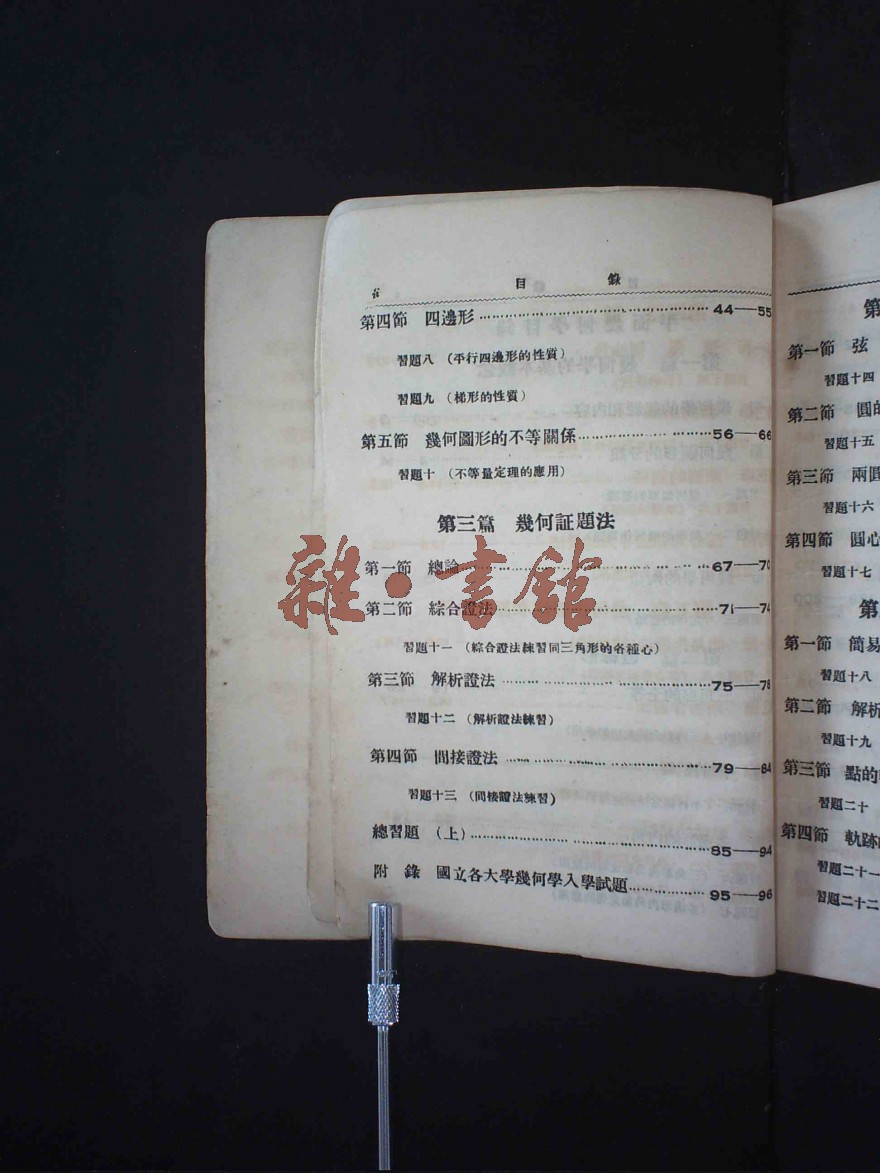 目錄
第四節 四邊形 44—55
習題八 (平行四邊形的性質)
習題九 (梯形的性質)
第五節 幾何圖形的不等關係 56—66
習題十 (不等量定理的應用)
第三篇 幾何証題法
第一節 總論 67—70
第二節 綜合證法 71—74
習題十一 (綜合證法練習同三角形的各種心)
第三節 解析證法 75—78
習題十二 (解析證法練習)
第四節 間接證法 79—84
習題十三 (間接證法練習)
總習題 (上) 85—94
附錄 國立各大學幾何學入學試題 95—96
雜·書館
第
第一節 弦
習題十四
第二節 圓的
習題十五
第三節 兩圓
習題十六
第四節 圓心
習題十七
第
第一節 簡易
習題十八
第二節 解析
習題十九
第三節 點的
習題二十
第四節 軌跡
習題二十一
習題二十二